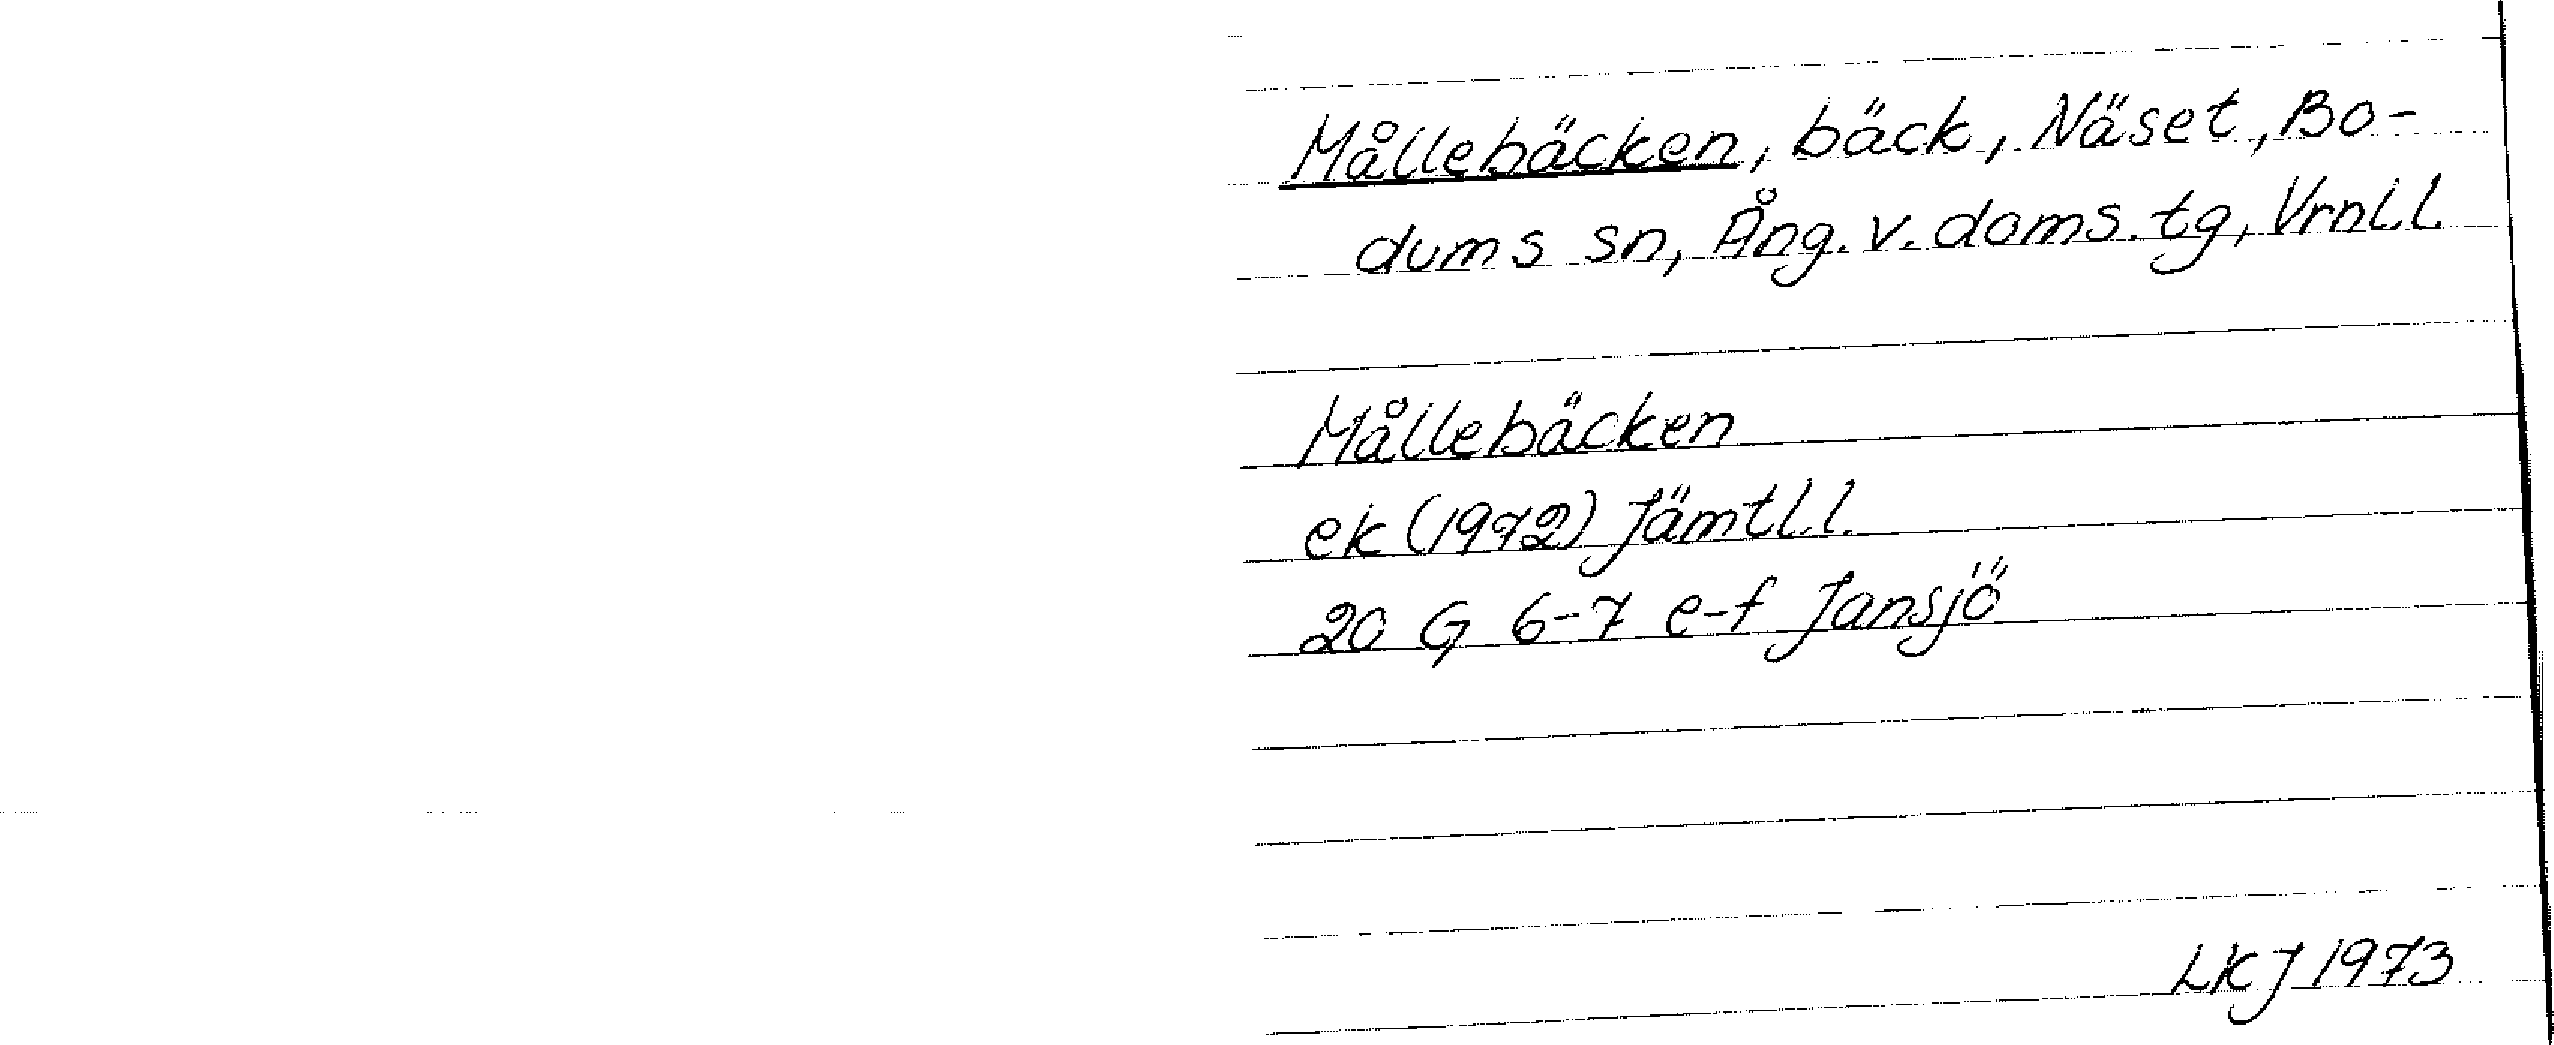 Mållebäcken, bäck, Näset, Bo-
dums sn, Ång. v. doms. tg, Vrnl.l.
Mållebäcken
ek (1972) Jämtl.l.
20 G 6-7 e-f Jansjö
LKJ 1973